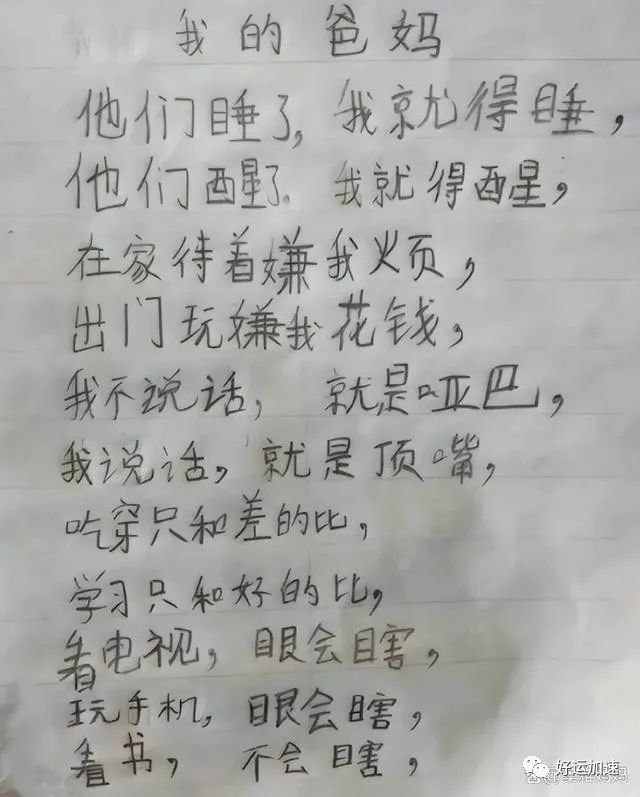 我的爸妈
他们睡了,我就得睡,
他们醒了。我就得醒,
在家待着嫌我烦,
出门玩嫌我花钱,
我不说话,就是哑巴,
我说话,就是顶嘴,
吃穿只和差的比,
学习只和好的比,
看电视,眼会瞎,
玩手机,眼会瞎,
看书,不会瞎,
好运加速